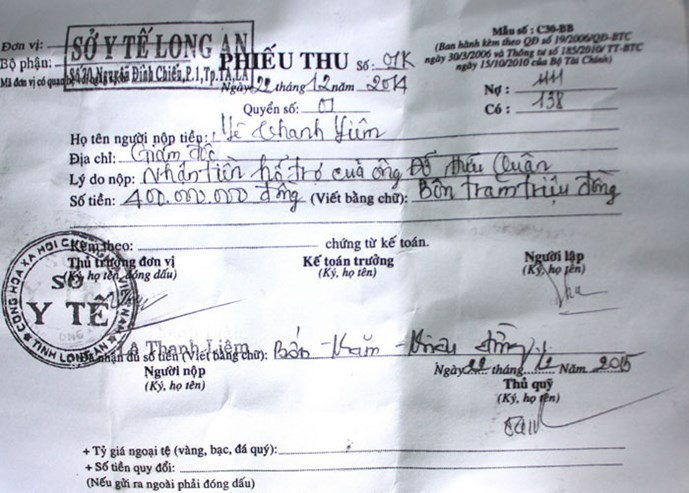 Đơn vị:
SỞ Y TẾ LONG AN
Bộ phận:
Số 70, Nguyễn Đình Chiểu, P.1, Tp.TA, LA
Mã đơn vị có quan
Mẫu số : C30-BB
(Ban hành kèm theo QĐ số 19/2006/QĐ-BTC
ngày 30/3/2006 và Thông tư số 185/2010/ TT-BTC
ngày 15/10/2010 của Bộ Tài Chính)
PHIẾU THU Số: 07K
Ngày 22 tháng 12 năm 2014
Quyển số: 01
Nợ : 1111
Có : 138
Họ tên người nộp tiền: Lê Thanh Liêm
Địa chỉ: Giám đốc
Lý do nộp: Nhận tiền hổ trợ của ông Đỗ Hiếu Quân
Số tiền: 400.000.000 đồng (Viết bằng chữ): Bốn trăm triệu đồng
Kèm theo: chứng từ kế toán.
Thủ trưởng đơn vị
(Ký, họ tên, đóng dấu)
Kế toán trưởng
(Ký, họ tên)
Người lập
(Ký, họ tên)
CỘNG HÒA XÃ HỘI CHỦ NGHĨA VIỆT NAM
SỞ
Y TẾ
TỈNH LONG AN
Lê Thanh Liêm
Đã nhận đủ số tiền (Viết bằng chữ): Bốn trăm triệu đồng
Ngày 22 tháng 12 Năm 2015
Người nộp
(Ký, họ tên)
Thủ quỹ
(Ký, họ tên)
+ Tỷ giá ngoại tệ (vàng, bạc, đá quý):
+ Số tiền quy đổi:
(Nếu gửi ra ngoài phải đóng dấu)